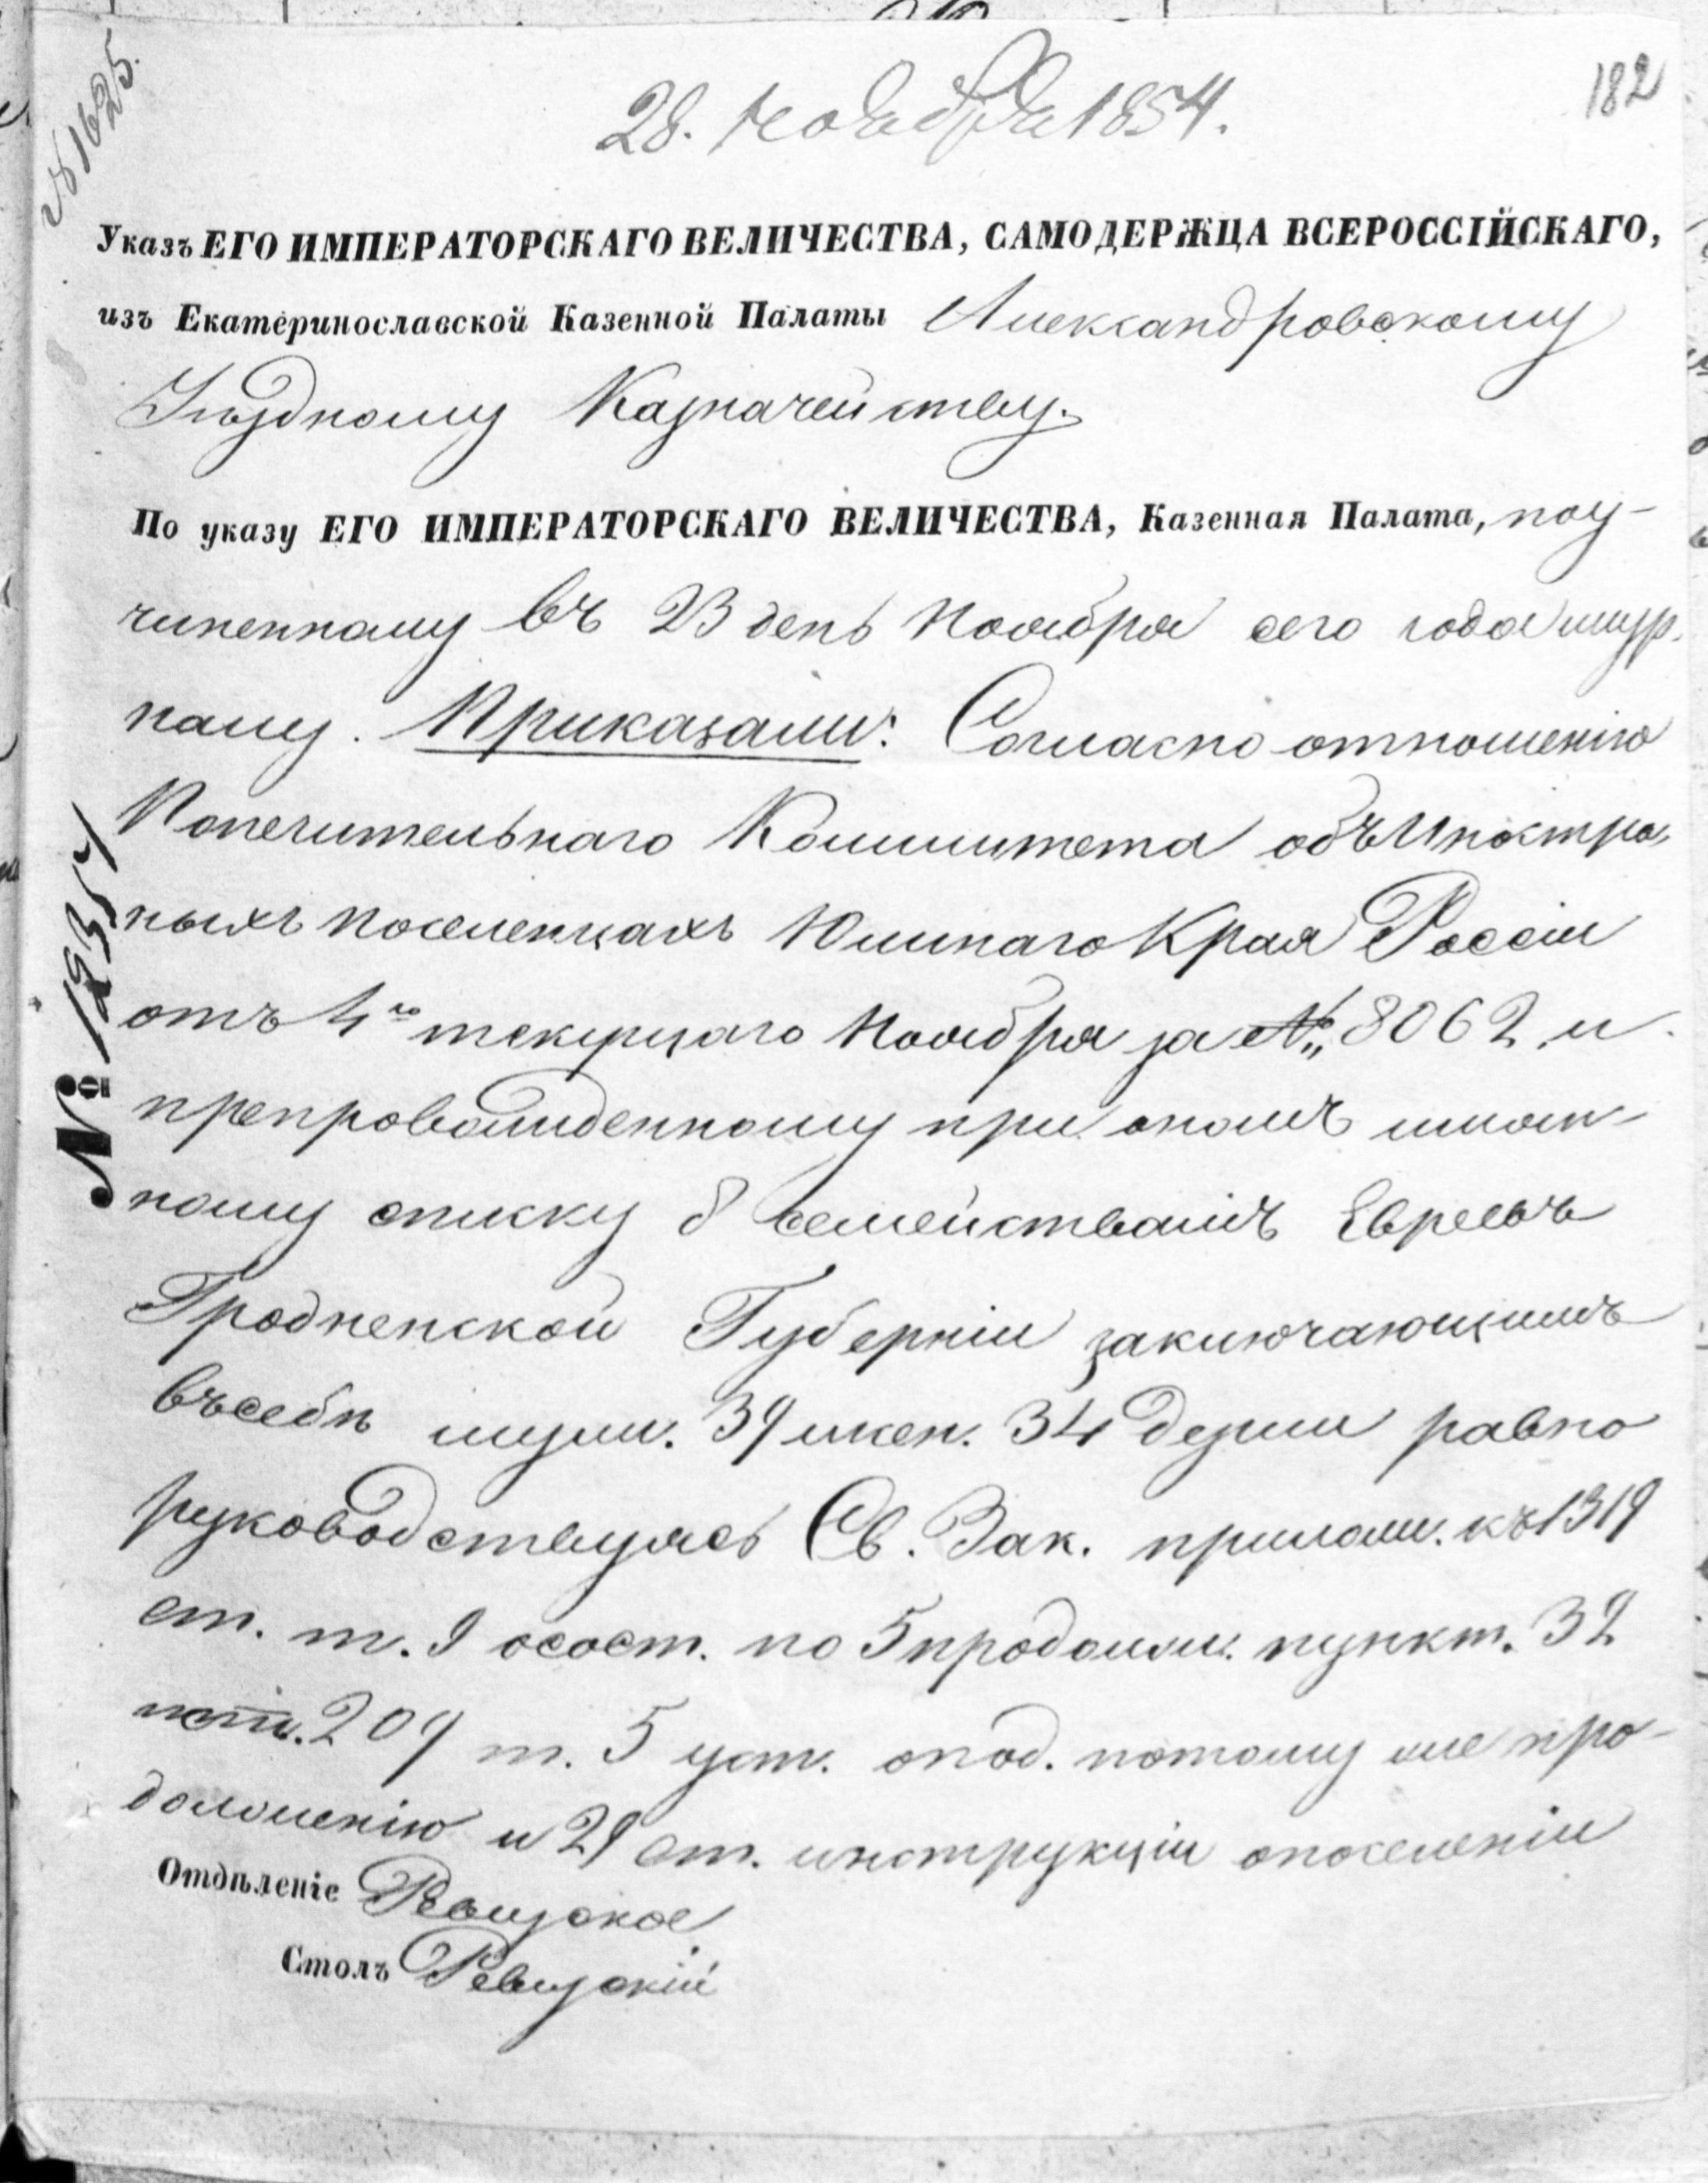 № 1625.
28. Ноября 1854.
182
Указъ ЕГО ИМПЕРАТОРСКАГО ВЕЛИЧЕСТВА, САМОДЕРЖЦА ВСЕРОССІЙСКАГО,
изъ Екатеринославской Казенной Палаты Александровскому
Уѣздному Казначейству.
По указу ЕГО ИМПЕРАТОРСКАГО ВЕЛИЧЕСТВА, Казенная Палата, по у-
чиненному въ 23 день Ноября сего года жур.
налу. Приказали: Согласно отношенію
Попечительнаго Коммитета объ Иностран
ныхъ поселенцахъ Южнаго Края Россіи
отъ 4го текущаго Ноября за № 8062, и
препровожденному при ономъ имен-
ному списку 8 семействамъ Евреевъ
Гродненской Губерніи заключающимъ
въ себѣ муж. 39 жен. 34 души равно
руководствуясь Св. Зак. прилож. къ 1319
ст. т. 9 о сост. по 5 продолж. пункт. 32
209 т. 5 уст. о под. потому же про-
долженію и 29 ст. инструкціи о поселеніи
Отдѣленіе Ревизское
Столъ Ревизскій
№ 12354